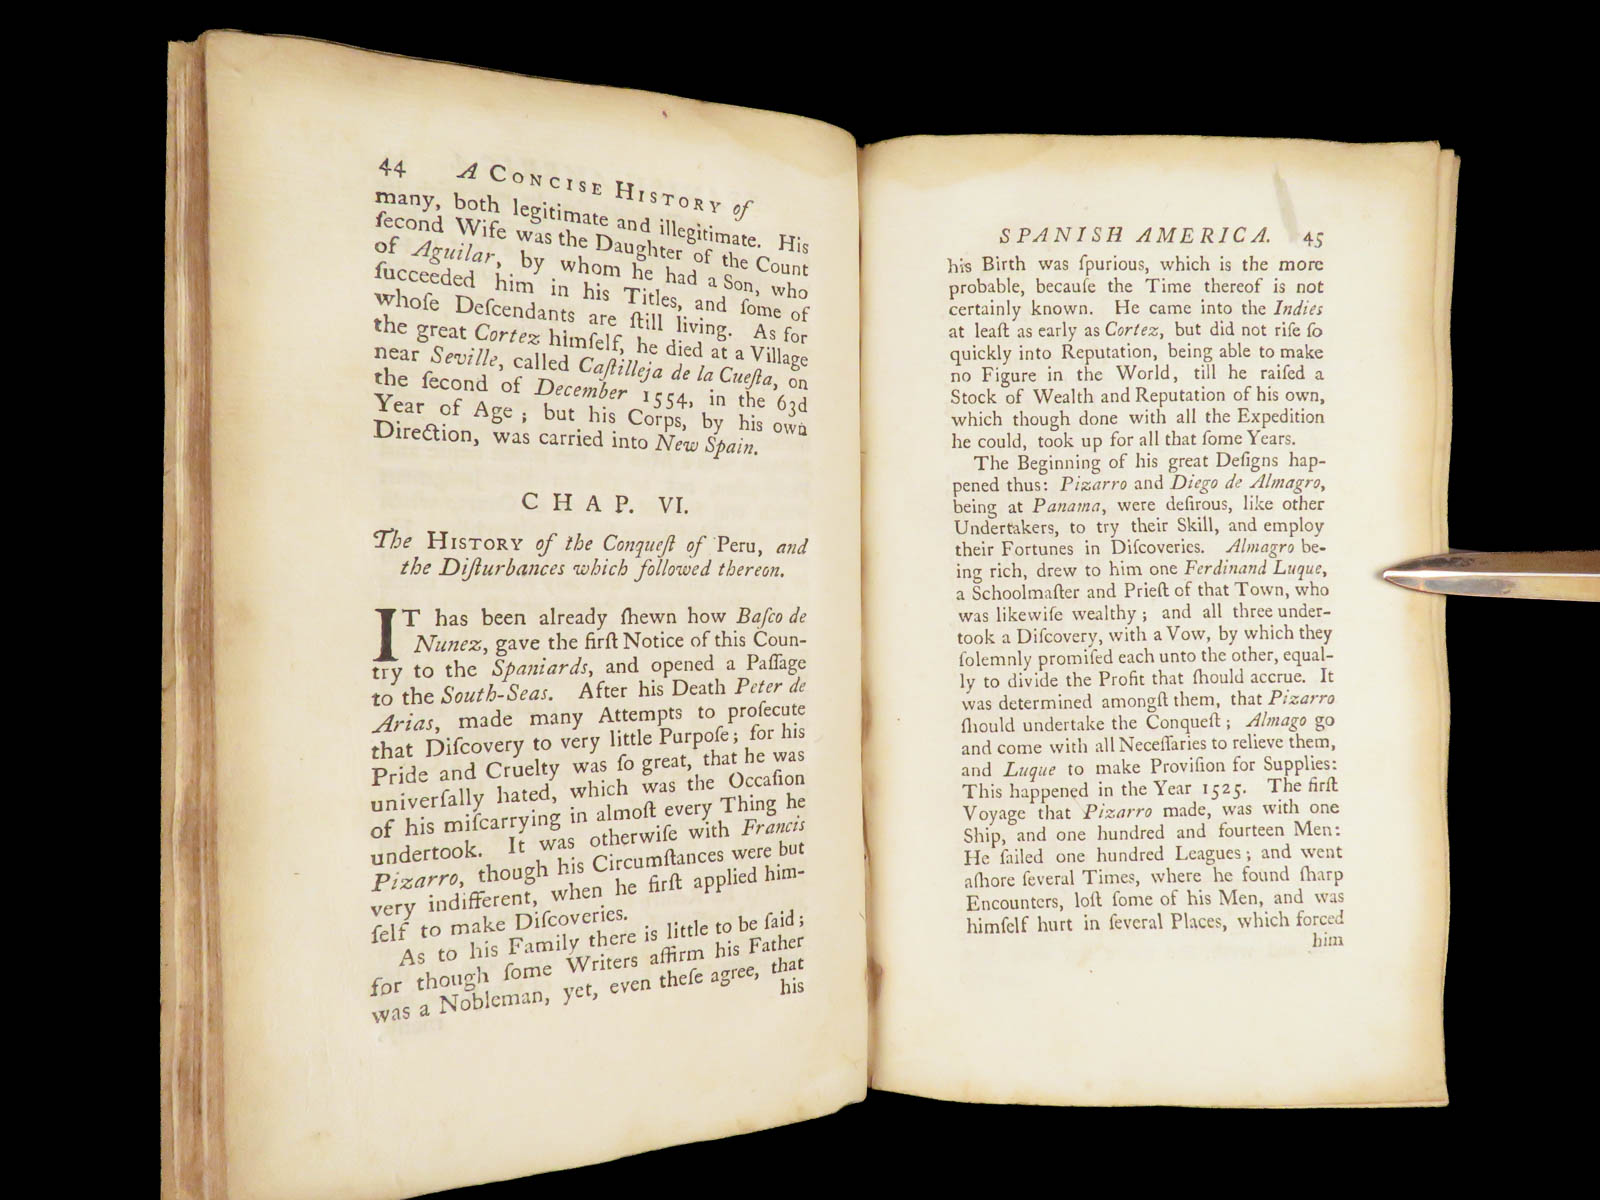 44 A CONCISE HISTORY of
many, both legitimate and illegitimate. His
ſecond Wife was the Daughter of the Count
of Aguilar, by whom he had a Son, who
ſucceeded him in his Titles, and ſome of
whoſe Deſcendants are ſtill living. As for
the great Cortez himſelf, he died at a Village
near Seville, called Caſtilleja de la Cueſta, on
the ſecond of December 1554, in the 63d
Year of Age; but his Corps, by his own
Direction, was carried into New Spain.
CHAP. VI.
The HISTORY of the Conqueſt of Peru, and
the Diſturbances which followed thereon.
IT has been already ſhewn how Baſco de
Nunez, gave the firſt Notice of this Coun-
try to the Spaniards, and opened a Paſſage
to the South-Seas. After his Death Peter de
Arias, made many Attempts to proſecute
that Diſcovery to very little Purpoſe; for his
Pride and Cruelty was ſo great, that he was
univerſally hated, which was the Occaſion
of his miſcarrying in almoſt every Thing he
undertook. It was otherwiſe with Francis
Pizarro, though his Circumſtances were but
very indifferent, when he firſt applied him-
ſelf to make Diſcoveries.
As to his Family there is little to be ſaid;
for though ſome Writers affirm his Father
was a Nobleman, yet, even theſe agree, that
his
SPANISH AMERICA. 45
his Birth was ſpurious, which is the more
probable, becauſe the Time thereof is not
certainly known. He came into the Indies
at leaſt as early as Cortez, but did not riſe ſo
quickly into Reputation, being able to make
no Figure in the World, till he raiſed a
Stock of Wealth and Reputation of his own,
which though done with all the Expedition
he could, took up for all that ſome Years.
The Beginning of his great Deſigns hap-
pened thus: Pizarro and Diego de Almagro,
being at Panama, were deſirous, like other
Undertakers, to try their Skill, and employ
their Fortunes in Diſcoveries. Almagro be-
ing rich, drew to him one Ferdinand Luque,
a Schoolmaſter and Prieſt of that Town, who
was likewiſe wealthy; and all three under-
took a Diſcovery, with a Vow, by which they
ſolemnly promiſed each unto the other, equal-
ly to divide the Profit that ſhould accrue. It
was determined amongſt them, that Pizarro
ſhould undertake the Conqueſt; Almago go
and come with all Neceſſaries to relieve them,
and Luque to make Proviſion for Supplies:
This happened in the Year 1525. The firſt
Voyage that Pizarro made, was with one
Ship, and one hundred and fourteen Men:
He ſailed one hundred Leagues; and went
aſhore ſeveral Times, where he found ſharp
Encounters, loſt ſome of his Men, and was
himſelf hurt in ſeveral Places, which forced
him